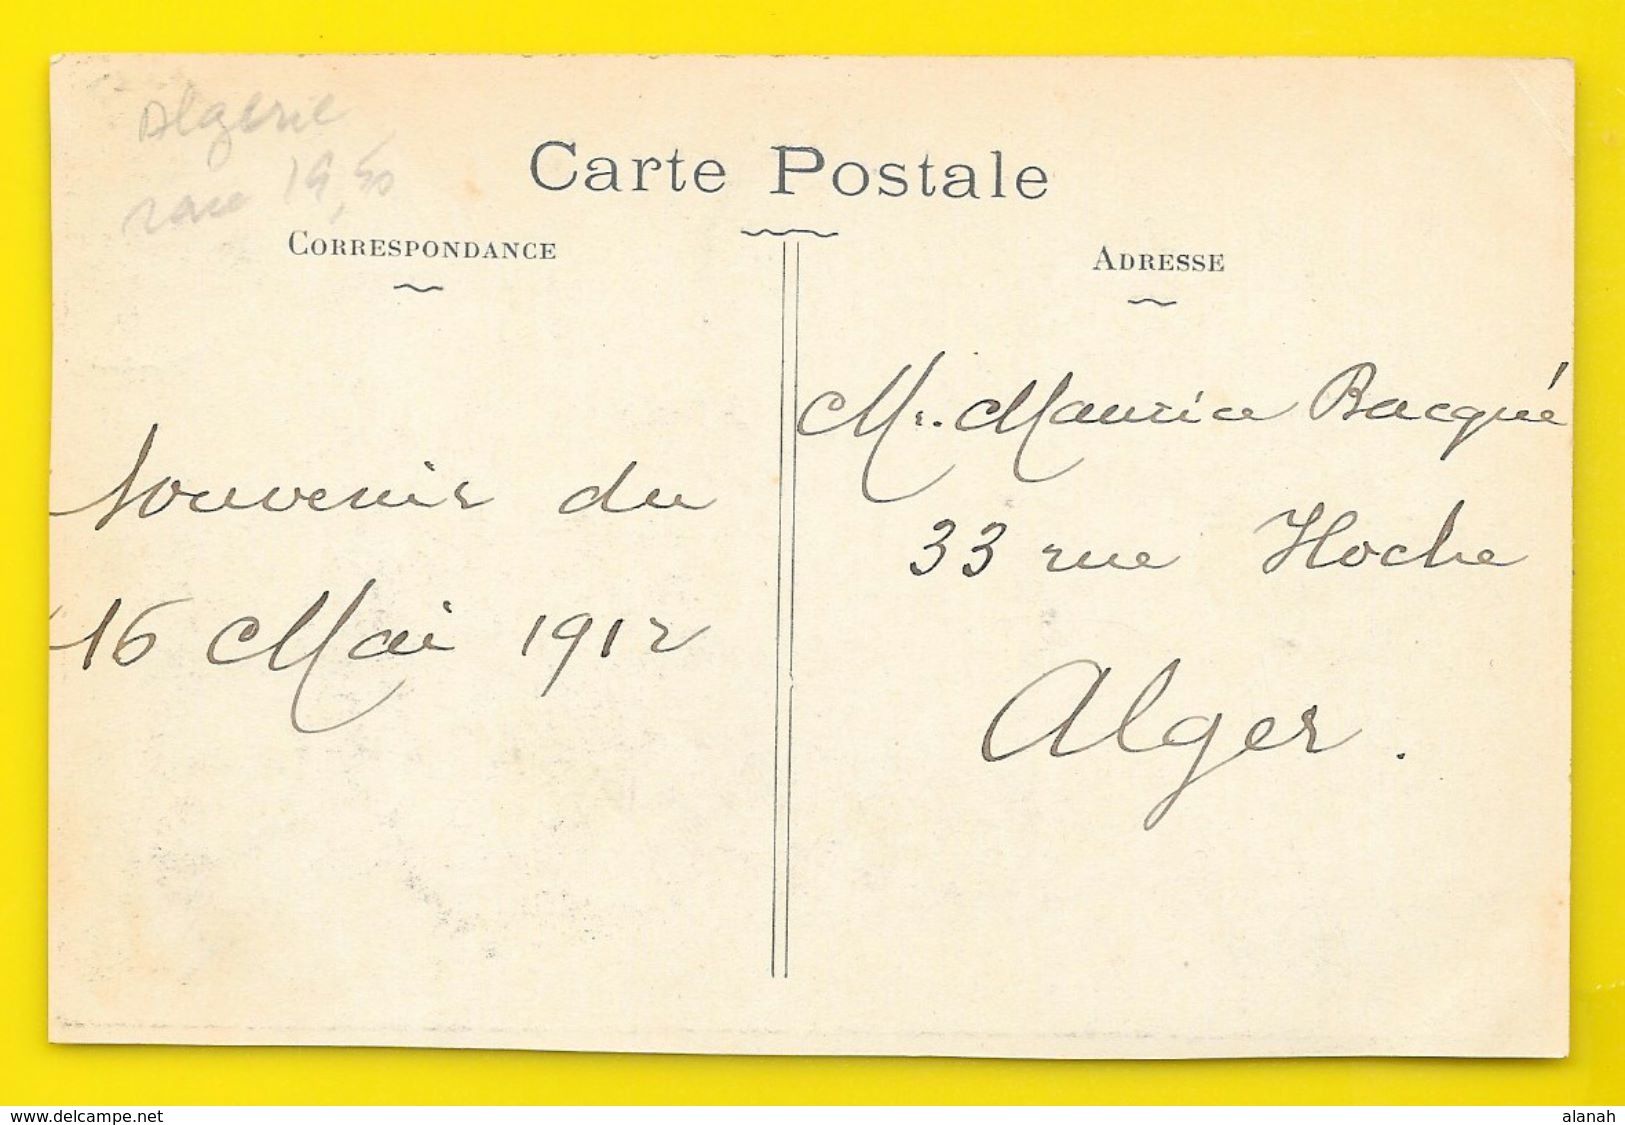 Algerie
rare 19,50
Carte Postale
CORRESPONDANCE
ADRESSE
Souvenir du
16 Mai 1912
Mr. Maurice Bacqué
33 rue Hoche
Alger.
www.delcampe.net
alanah